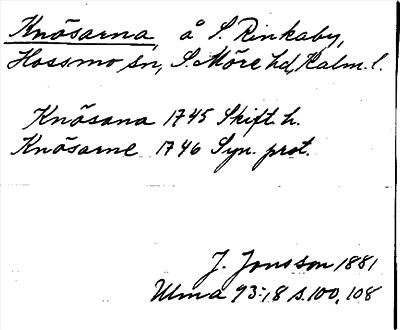 Knösarna, å S. Rinkaby,
Hossmo sn, S. Möre hd, Kalm. l.
Knösana 1745 Skift. h.
Knösarne 1746 Syn. prot.
J. Jonsson 1881
Ulma 93:18 s. 100, 108